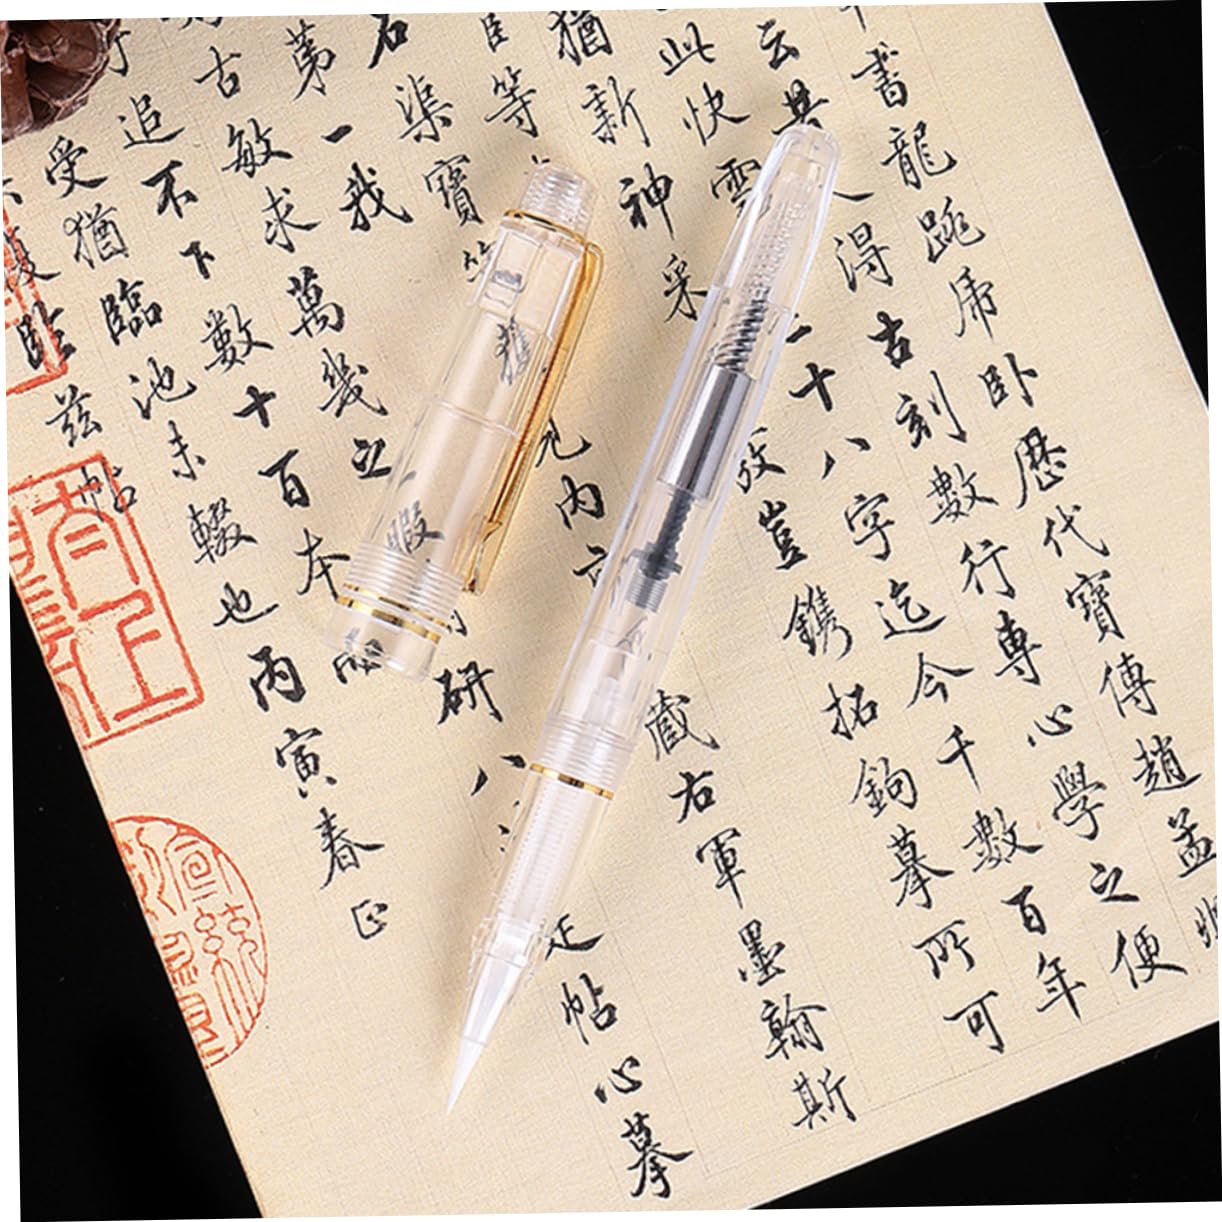 書龍跳虎卧歷代寶傳趙孟
云其人得古刻數行專心學之便
此快雪二十八字迄今千數百年
猶新神采奕豈鐫拓鉤摹所可
臣等
石渠寶笈元内府藏右軍墨翰斯
第一我
古敏求萬幾之暇研八是帖心摹
追不下數十百本而
受猶臨池未輟也丙寅春正
復臨茲帖